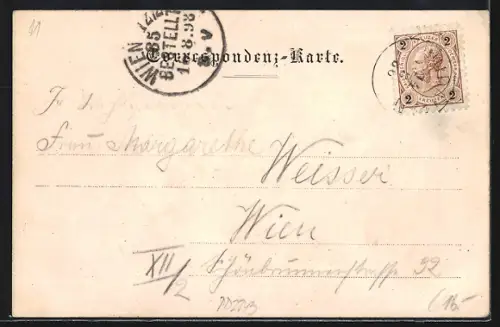 41
WIEN
85
BESTELLT
8.98
8.V
Correspondenz-Karte.
98
2 2
2 2
Frau Margarethe
Weisser
Wien
XII/2
Schönbrunnerstrasse 92